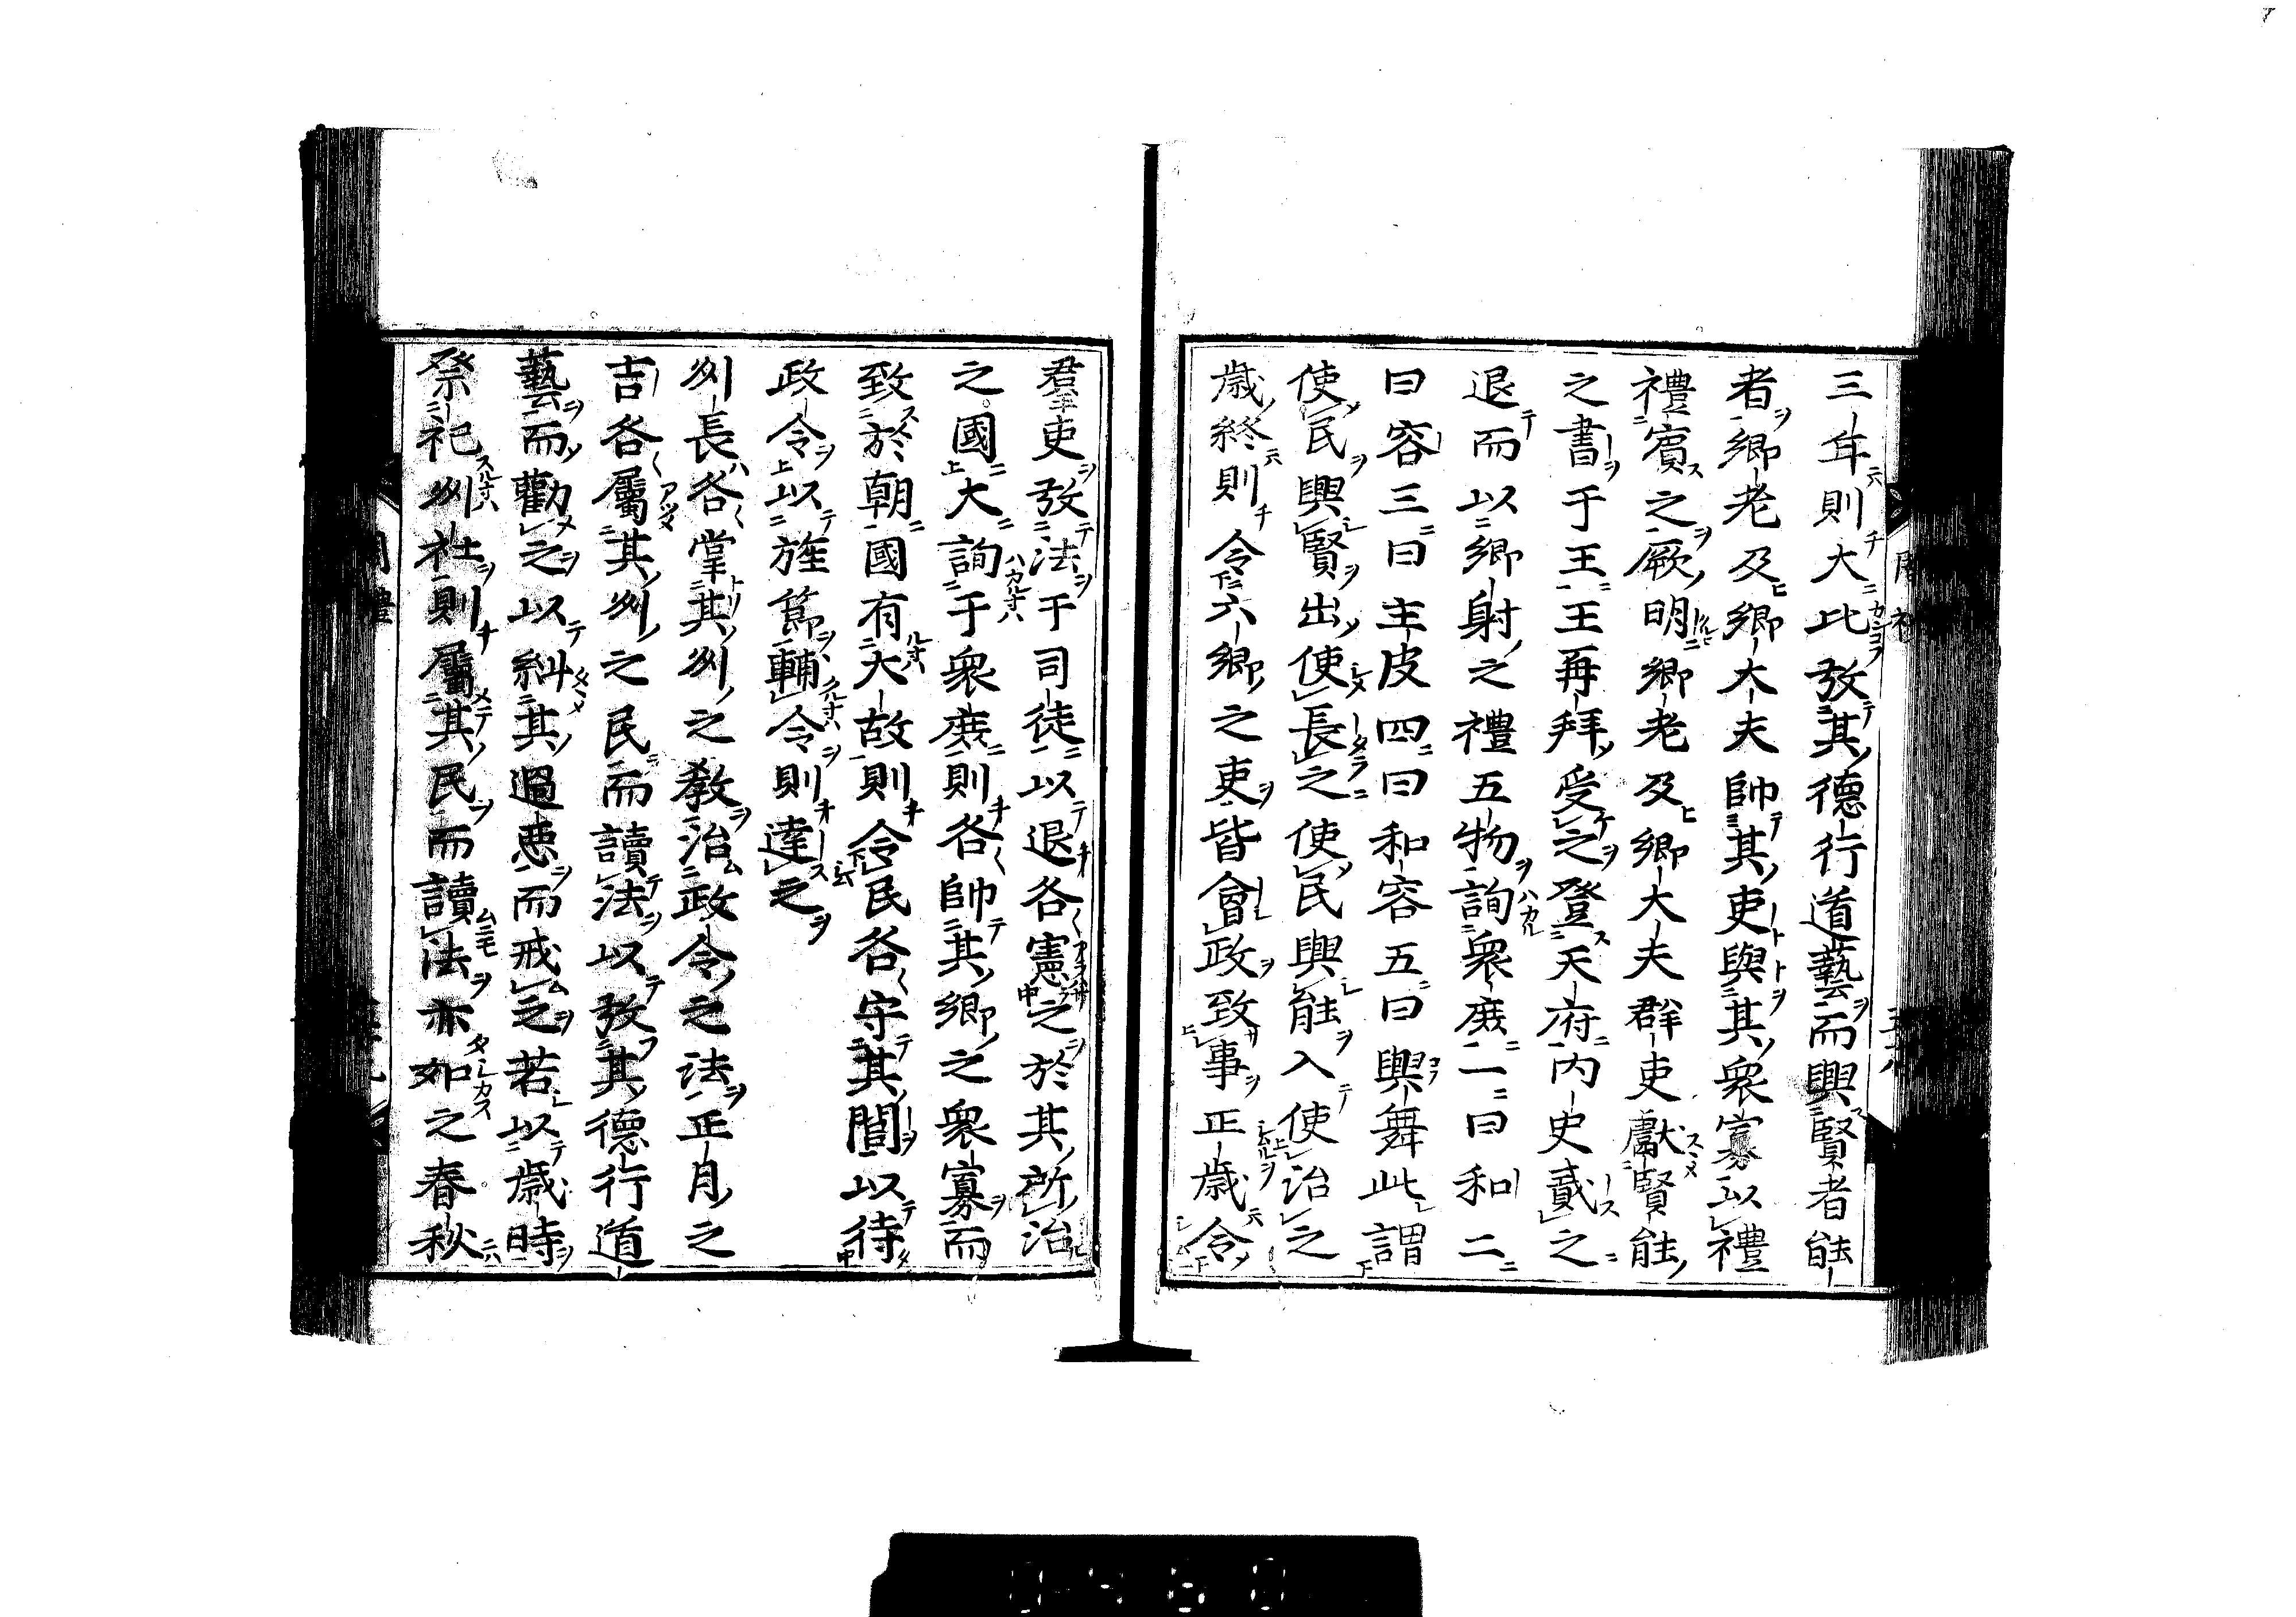 三年則大比攷其德行道藝而興賢者能
者鄉老及鄉大夫帥其吏與其衆寡以禮
禮賓之厥明鄉老及鄉大夫群吏獻賢能
之書于王王再拜受之登天府內史貳之
退而以鄉射之禮五物詢衆庶一曰和二
曰容三曰主皮四曰和容五曰興舞此謂
使民興賢出使長之使民興能入使治之
歲終則令六鄉之吏皆會政致事正歲令
羣吏攷法于司徒以退各憲之於其所治
之國大詢于衆庶則各帥其鄉之衆寡而
致於朝國有大故則令民各守其閭以待
政令以旌節輔令則達之
州長各掌其州之教治政令之法正月之
吉各屬其州之民而讀法以攷其德行道
藝而勸之以糾其過惡而戒之若以歲時
祭祀州社則屬其民而讀法亦如之春秋